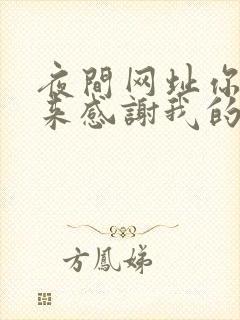 夜間网址你
来感謝我的
方鳳娣